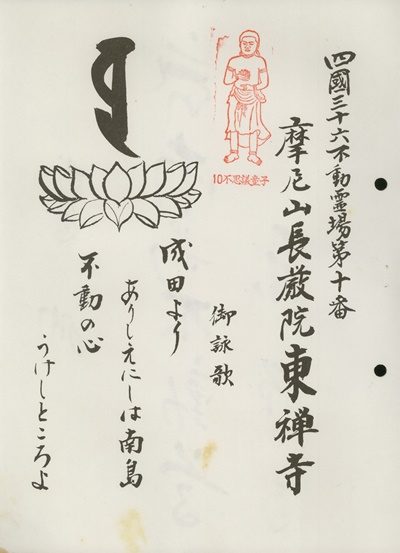 四國三十六不動霊場第十番
摩尼山長嚴院東禅寺
10不思議童子
御詠歌
成田より
ありしえにしは南島
不動の心
うけしところよ